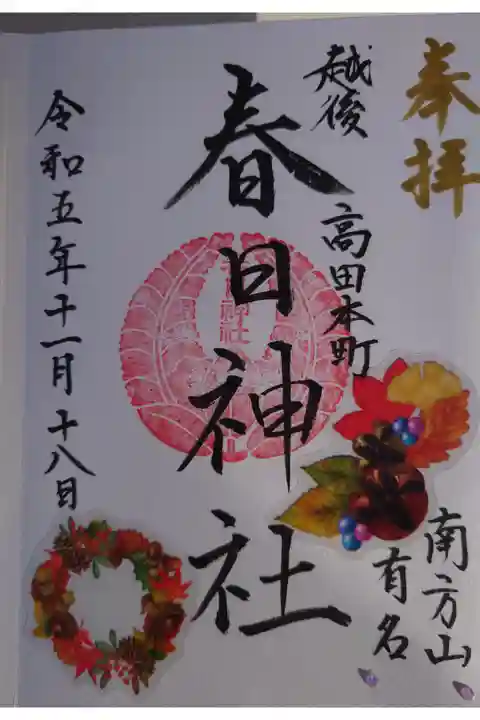 奉拝
越後 高田本町
南方山
有名
春日神社
令和五年十一月十八日